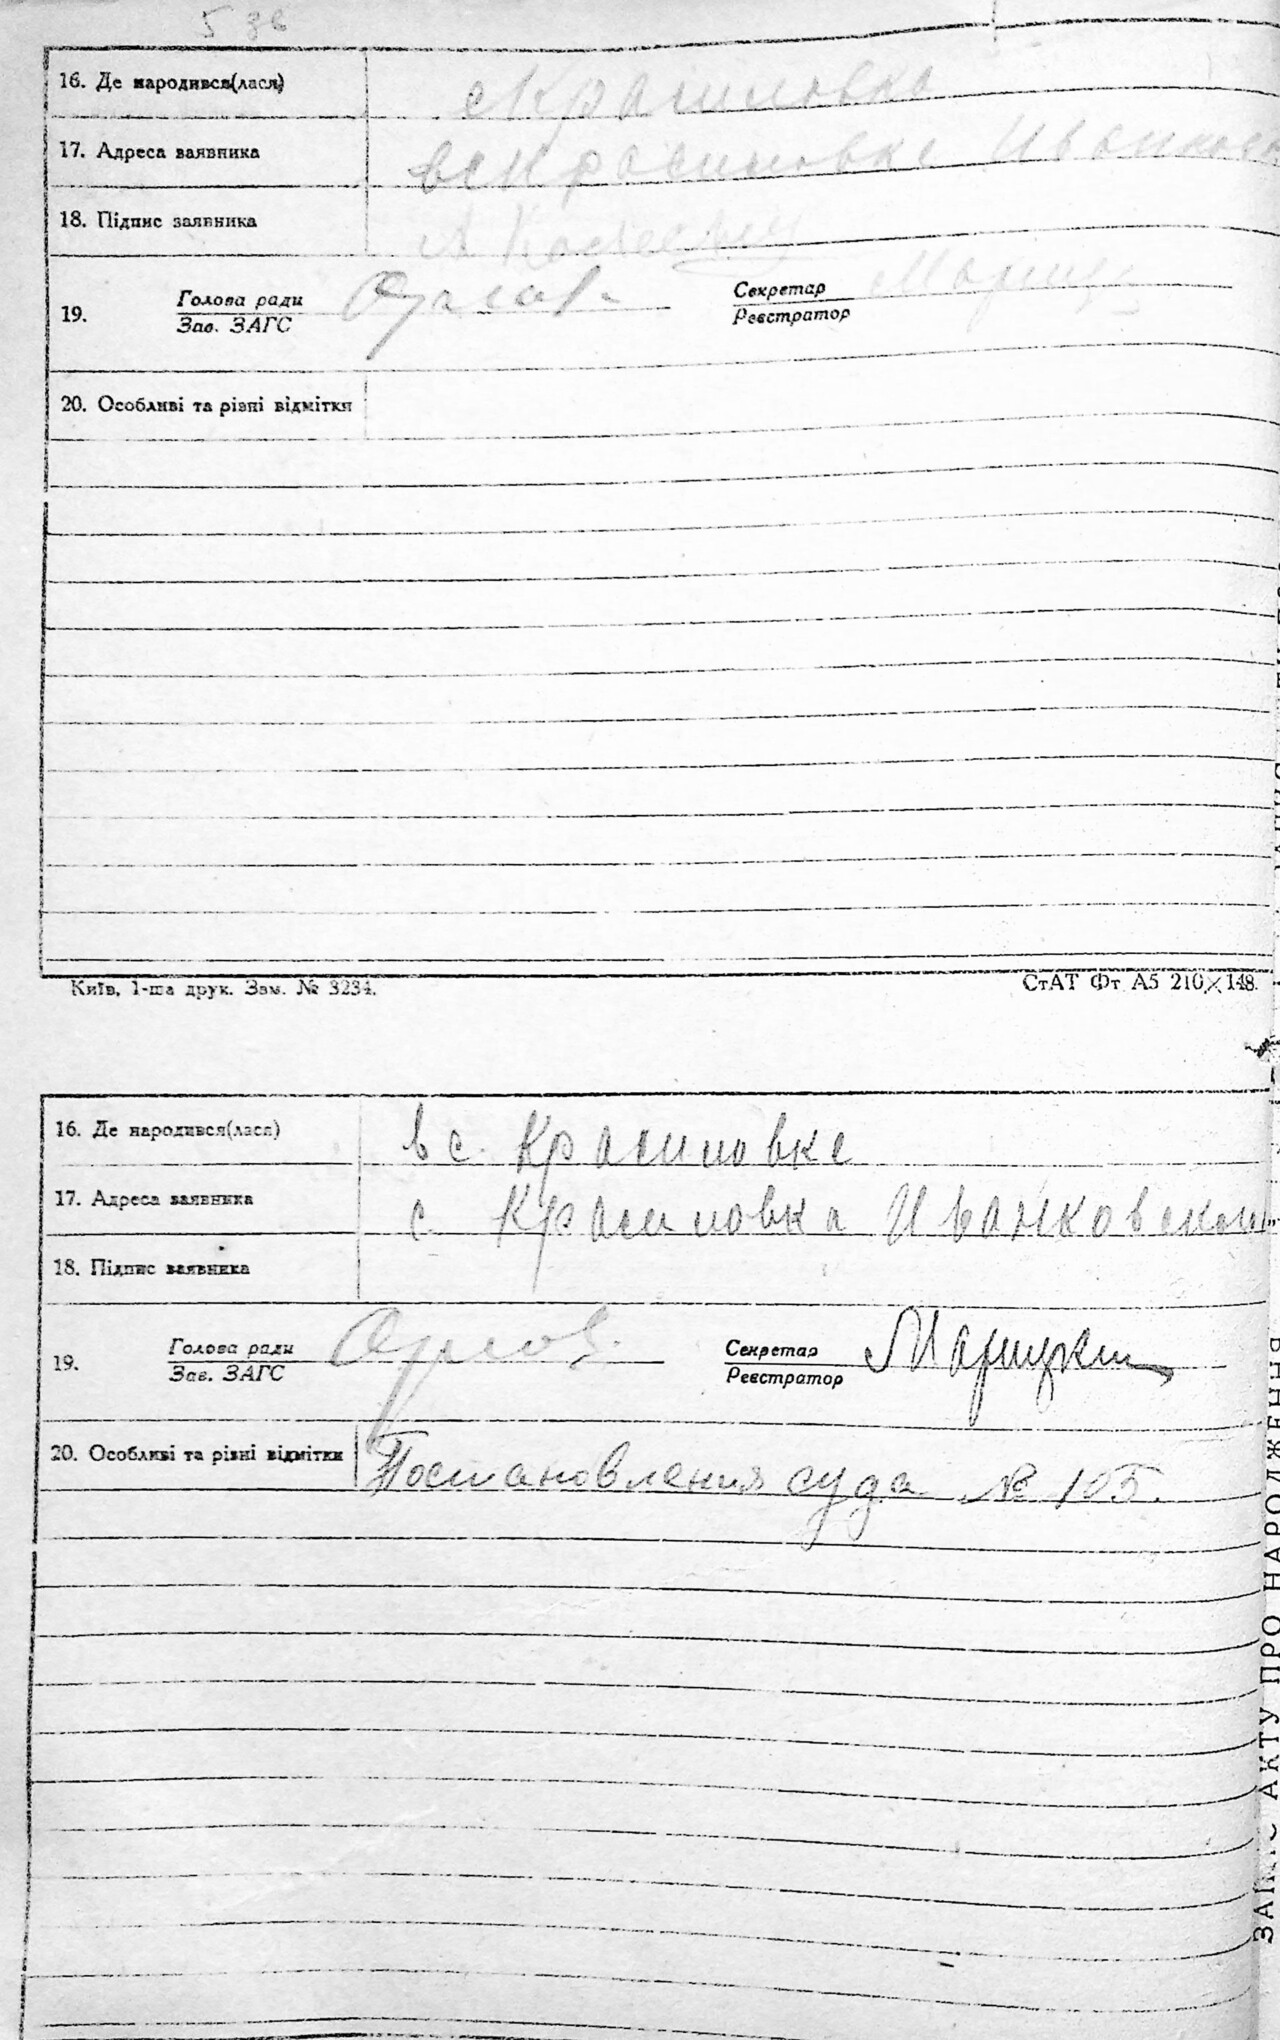 5 зв
16. Де народився(лася) с Красиловка
17. Адреса заявника в с Красиловке
18. Підпис заявника А
Голова ради Секретар
19.
Зав. ЗАГС Реєстратор
20. Особливі та різні відмітки
Київ, 1-ша друк. Зам. № 3234. СтАТ Фт А5 210×148.
16. Де народився(лася) в с. Красиловке
17. Адреса заявника с. Красиловка Иванковского
18. Підпис заявника
Голова ради Секретар
19.
Зав. ЗАГС Реєстратор
20. Особливі та різні відмітки Постановления суда № 105.
ЗАПИС АКТУ ПРО НАРОДЖЕННЯ